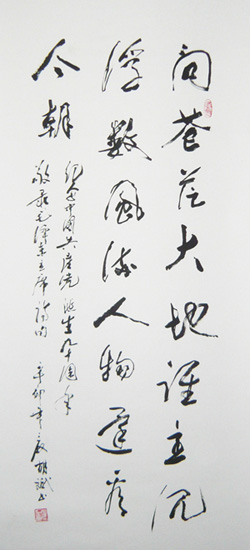 问苍茫大地谁主沉
浮数风流人物还看
今朝
纪念中国共产党诞生九十周年
敬录毛泽东主席诗句
辛卯年夏胡书